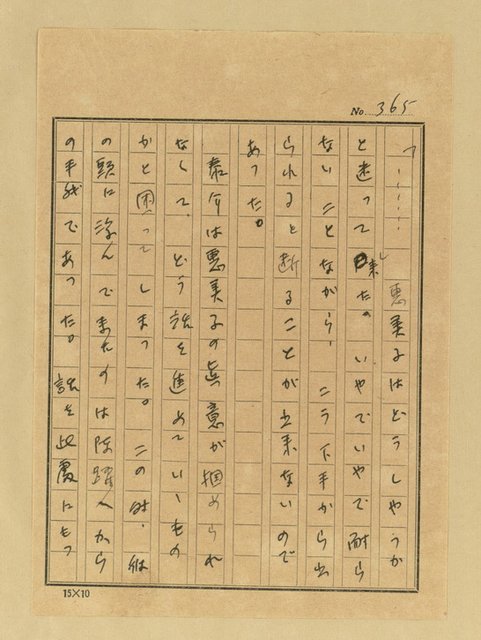 No. 365
「……惠美子はどうしやうか
と迷って來た。いやでいやで耐ら
ないことながら、こう下手から出
られると斷ることが出来ないので
あった。
泰介は惠美子の眞意が掴められ
なくて、どう話を進めていゝもの
かと困ってしまった。この時、彼
の頭に浮んでまたのは陳躍人から
の手紙であった。話を此處にもつ
15×10